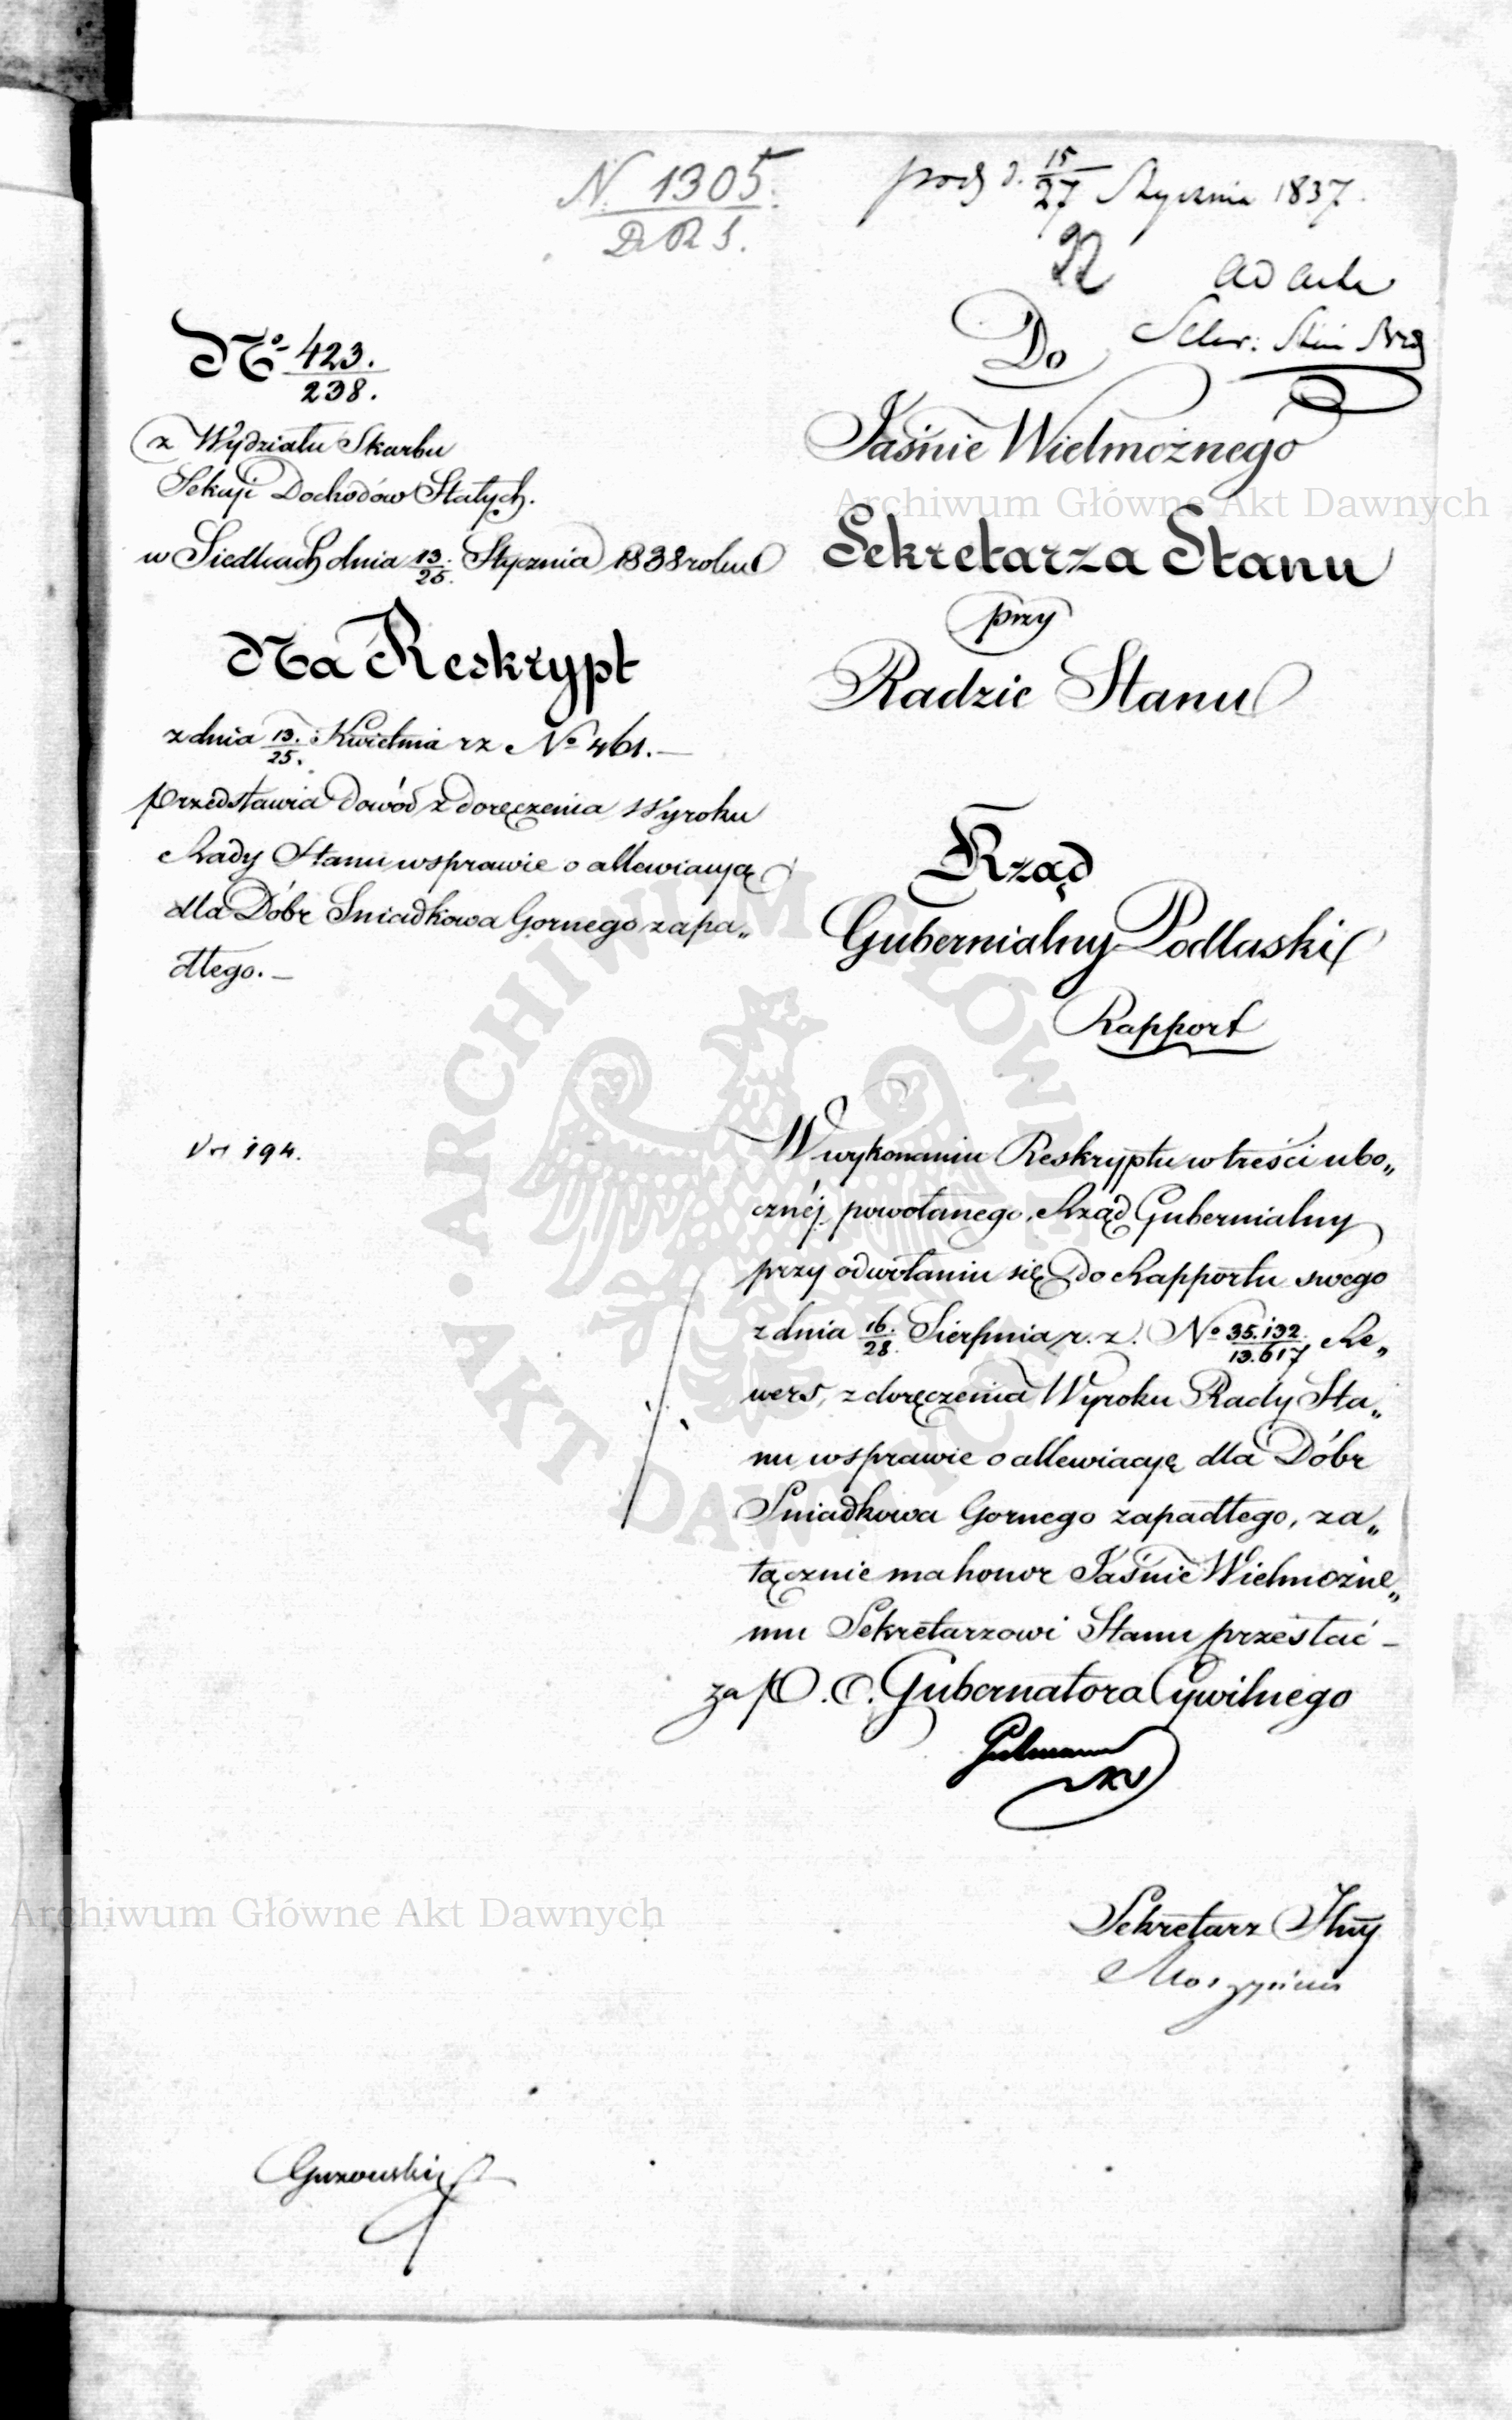 N. 1305.
D R S.
15
27 Stycznia 1837.
92
ad acta
No 423.
238.
z Wydziału Skarbu
Sekcji Dochodów Stałych.
w Siedlcach dnia 13/25. Stycznia 1838 roku
Na Reskrypt
z dnia 13./25. Kwietnia rz No 461.—
przedstawia dowód z doręczenia Wyroku
Rady Stanu w sprawie o allewiacyą
dla Dóbr Sniadkowa Gornego zapa„
dłego.—
Do
Jaśnie Wielmożnego
Sekretarza Stanu
przy
Radzie Stanu
Rząd
Gubernialny Podlaski
Rapport
194.
W wykonaniu Reskryptu w treści ubo„
cznéj powołanego, Rząd Gubernialny
przy odwołaniu się do Rapportu swego
z dnia 16./28. Sierpnia r. z. No 35.132./13.617 Re„
wers, z doręczenia Wyroku Rady Sta„
nu w sprawie o allewiacyę dla Dóbr
Sniadkowa Gornego zapadłego, za„
łącznie ma honor Jaśnie Wielmożne„
mu Sekretarzowi Stanu przesłać —
za P. O. Gubernatora Cywilnego
Sekretarz
Guzowski
Archiwum Główne Akt Dawnych
ARCHIWUM GŁÓWNE AKT DAWNYCH
Archiwum Główne Akt Dawnych